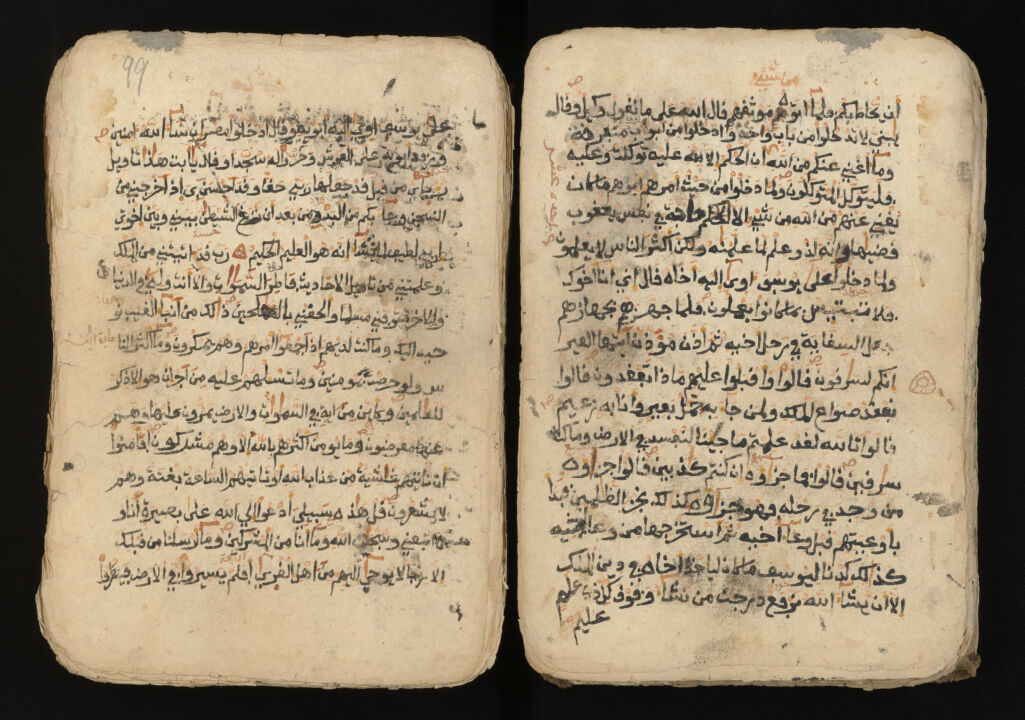 ان يحاط بكم فلما اتوه موثقهم قال الله على ما نقول وكيل وقال
يبني لا تدخلوا من باب واحد وادخلوا من ابواب متفرقة
وما اغني عنكم من الله ان الحكم الا لله عليه توكلت وعليه
فليتوكل المتوكلون ولما دخلوا من حيث امرهم ابوهم ما كان
يغني عنهم من الله من شيء الا حاجة في نفس يعقوب
قضيها وانه لذو علم لما علمنه ولكن اكثر الناس لا يعلمون
ولما دخلوا على يوسف اوى اليه اخاه قال اني انا اخوك
فلا تبتئس بما كانوا يعملون فلما جهزهم بجهازهم
جعل السقاية في رحل اخيه ثم اذن موذن ايتها العير
انكم لسرقون قالوا واقبلوا عليهم ماذا تفقدون قالوا
نفقد صواع الملك ولمن جا به حمل بعير وانا به زعيم
قالوا تالله لقد علمتم ما جينا لنفسد في الارض وما كنا
سرقين قالوا فما جزوه ان كنتم كذبين قالوا جزاوه
من وجد في رحله فهو جزاوه كذلك نجزي الظلمين فبدا
باوعيتهم قبل وعا اخيه ثم استخرجها من وعا اخيه
كذلك كدنا ليوسف ما كان لياخذ اخاه في دين الملك
الا ان يشا الله نرفع درجت من نشا وفوق كل ذي علم
عليم
99
على يوسف اوى اليه ابويه وقال ادخلوا مصر ان شا الله امنين
ورفع ابويه على العرش وخروا له سجدا وقال يابت هذا تاويل
رءياي من قبل قد جعلها ربي حقا وقد احسن بي اذ اخرجني من
السجن وجا بكم من البدو من بعد ان نزغ الشيطن بيني وبين اخوتي
ان ربي لطيف لما يشا انه هو العليم الحكيم رب قد اتيتني من الملك
وعلمتني من تاويل الاحاديث فاطر السموات والارض انت ولي في الدنيا
والاخرة توفني مسلما والحقني بالصلحين ذالك من انبا الغيب نو
حيه اليك وما كنت لديهم اذ اجمعوا امرهم وهم يمكرون وما اكثر النا
س ولو حرصت بمومنين وما تسلهم عليه من اجر ان هو الا ذكر
للعلمين وكاين من اية في السموات والارض يمرون عليها وهم
عنها معرضون وما يومن اكثرهم بالله الا وهم مشركون افامنوا
ان تاتيهم غاشية من عذاب الله او تاتيهم الساعة بغتة وهم
لا يشعرون قل هذه سبيلي ادعوا الى الله على بصيرة انا و
من اتبعني وسبحن الله وما انا من المشركين وما ارسلنا من قبلك
الا رجالا يوحى اليهم من اهل القرى افلم يسيروا في الارض فينظروا